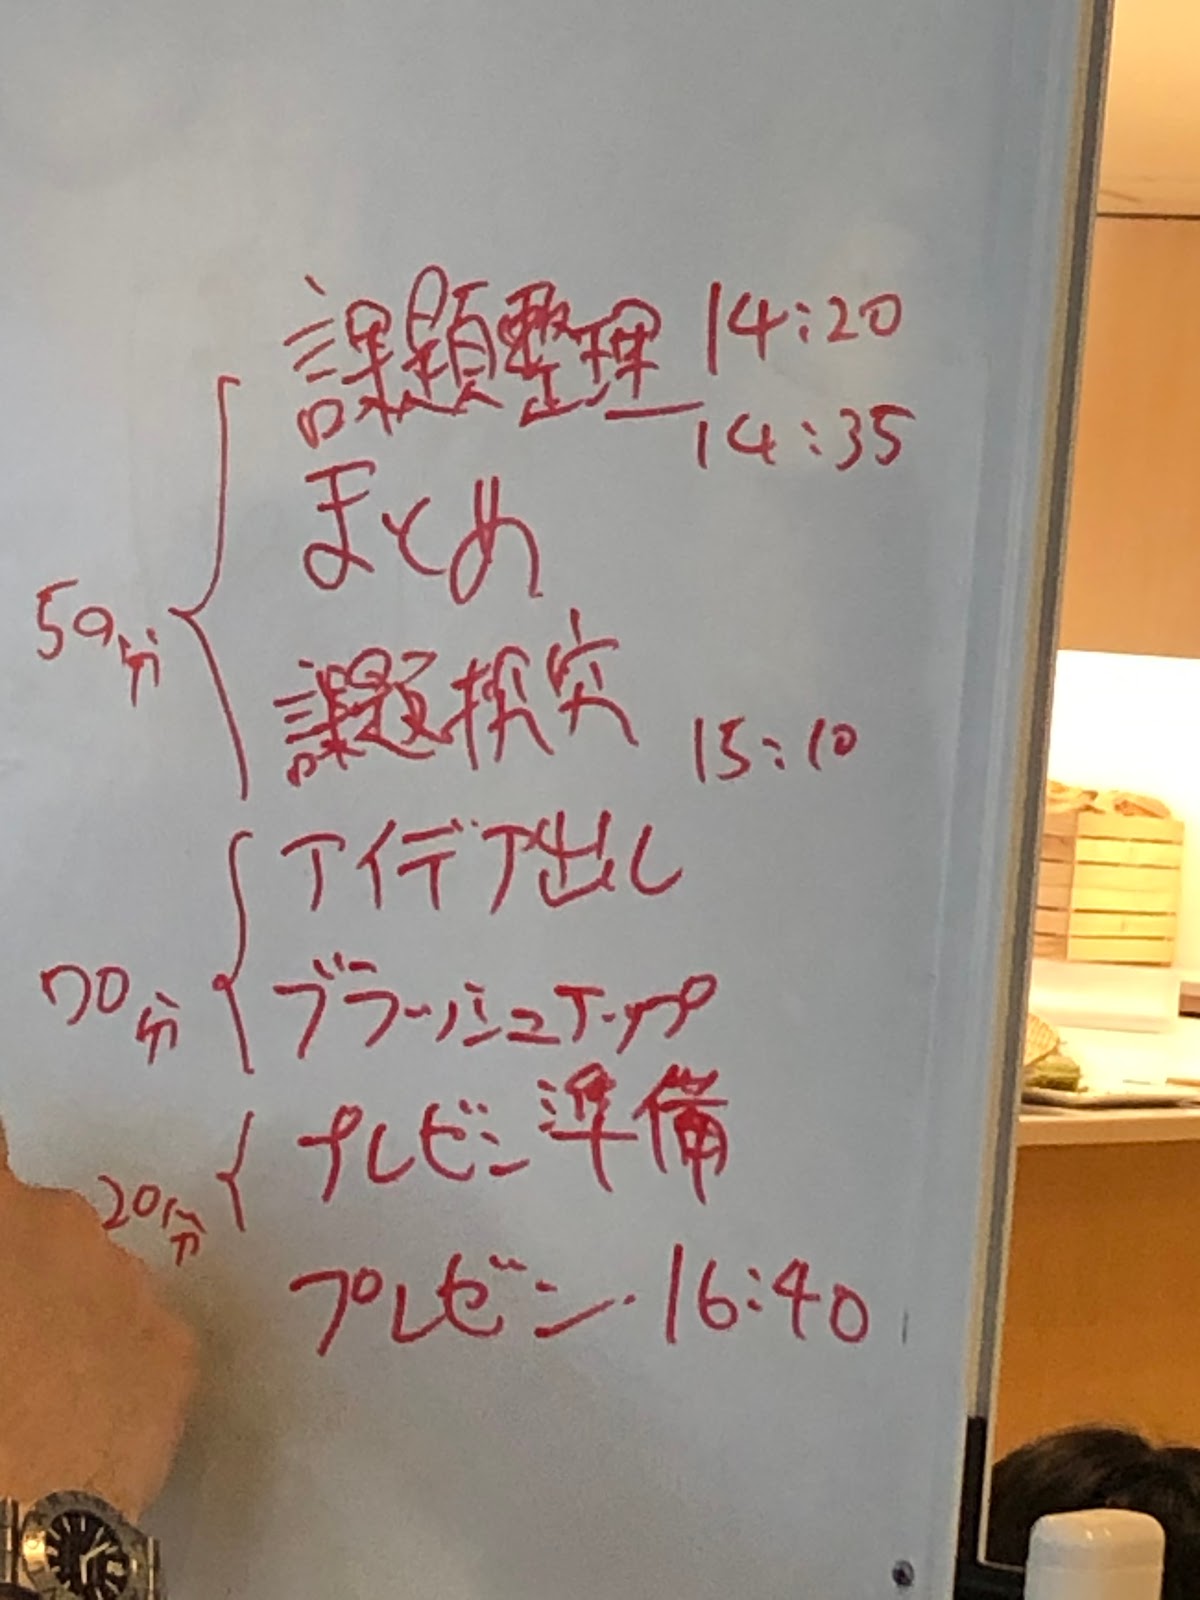 課題整理 14:20
14:35
まとめ
50分
課題探究
15:10
アイデア出し
70分
ブラッシュアップ
プレゼン準備
20分
プレゼン 16:40